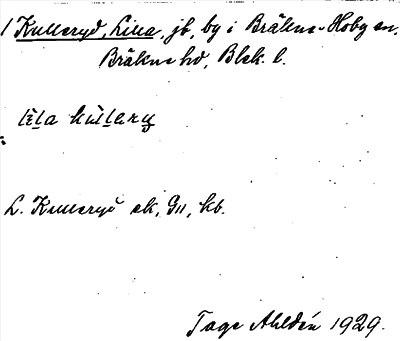 1 Kulleryd, Lilla, jb, by i Bräkne-Hoby sn,
Bräkne hd, Blek. l.
lila kulary
L. Kulleryd ek, G11, kb.
Tage Ahldén 1929.